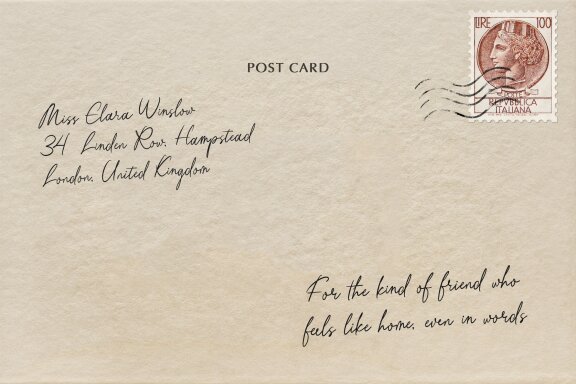 LIRE 100
POST CARD
POSTE
REPVBBLICA
ITALIANA
Miss Clara Winslow
34 Linden Row, Hampstead
London, United Kingdom
For the kind of friend who
feels like home, even in words